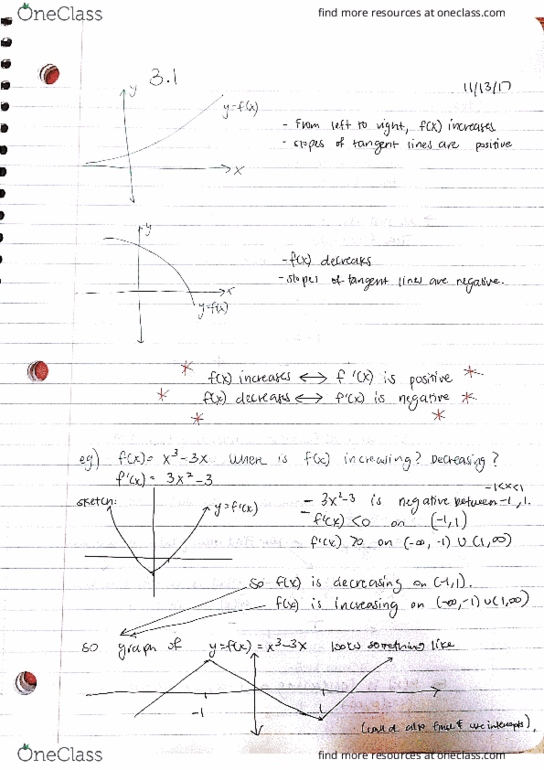 OneClass
find more resources at oneclass.com
3.1
11/13/17
y
y=f(x)
- From left to right, f(x) increases
- slopes of tangent lines are positive
x
y
- f(x) decreases
- slopes of tangent lines are negative.
x
y=f(x)
* f(x) increases ↔ f'(x) is positive *
* f(x) decreases ↔ f'(x) is negative *
* *
eg) f(x) = x³-3x where is f(x) increasing? Decreasing?
f'(x) = 3x²-3
-1<x<1
sketch:
y=f'(x)
- 3x²-3 is negative between -1, 1.
- f'(x) <0 on (-1,1)
f'(x) >0 on (-∞, -1) ∪ (1,∞)
so f(x) is decreasing on (-1,1).
f(x) is increasing on (-∞,-1) ∪ (1,∞)
so graph of y=f(x) = x³-3x looks something like
-1
1
(could also find & use intercepts).
OneClass
find more resources at oneclass.com